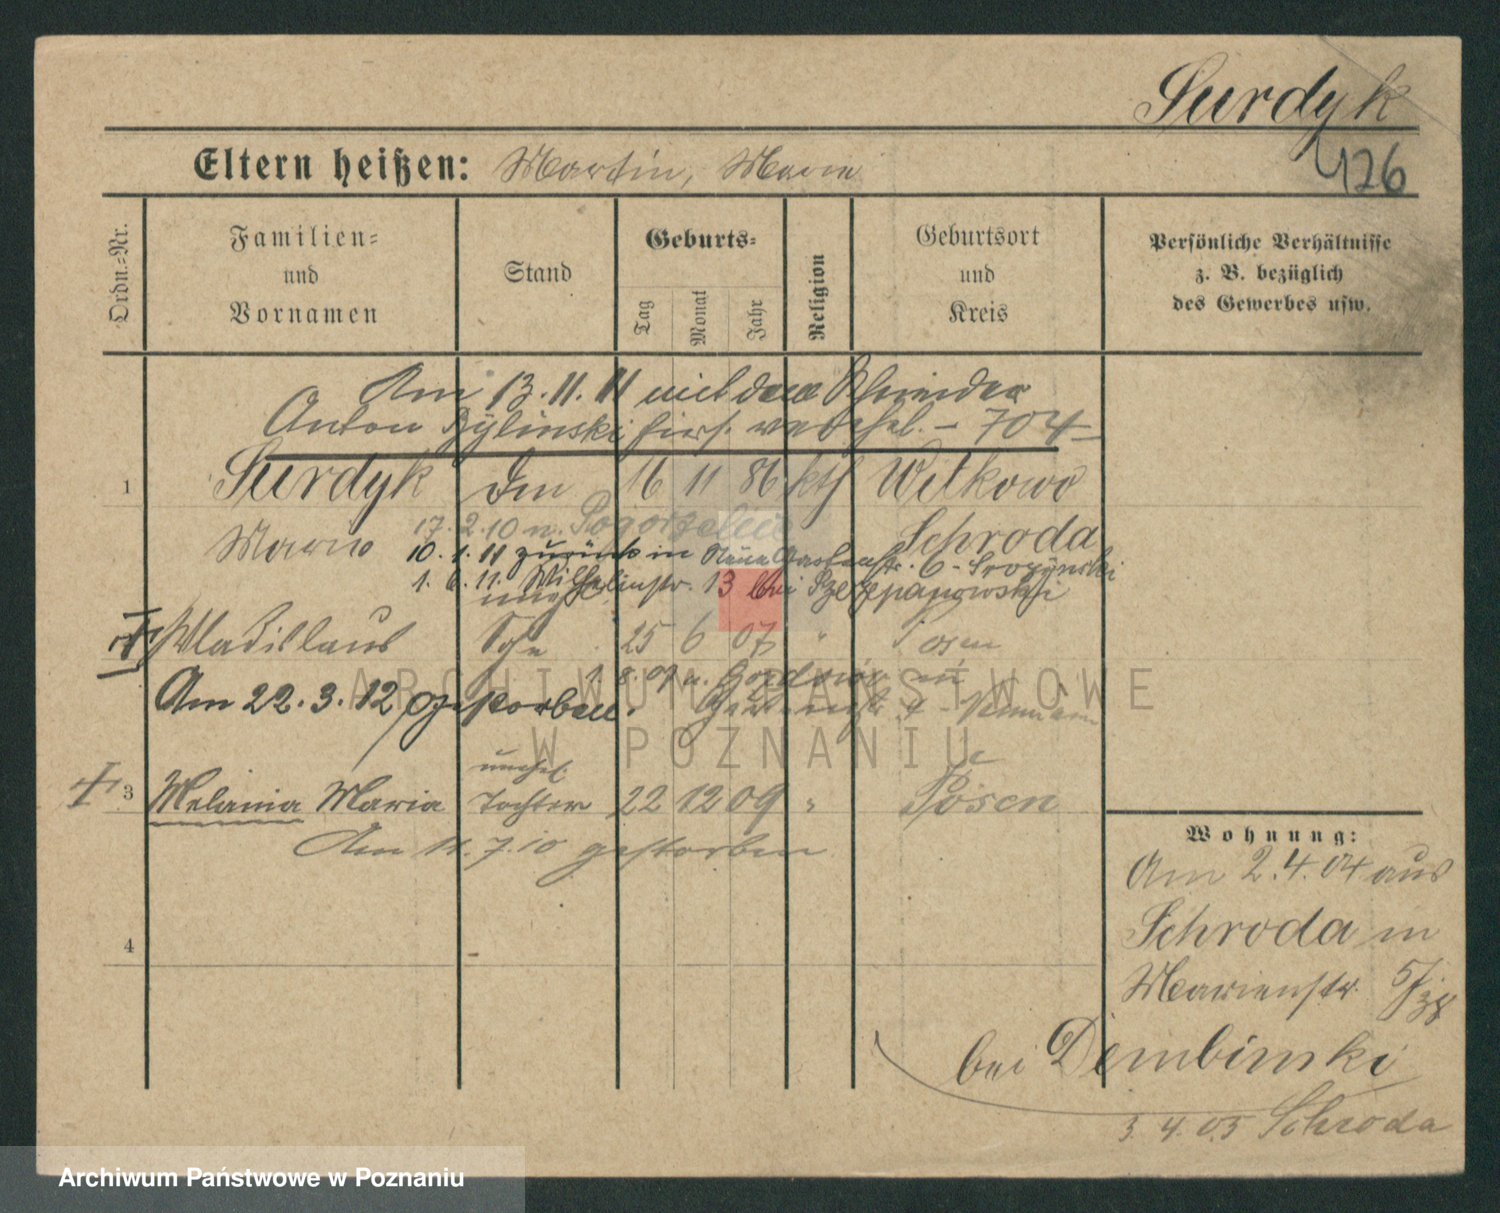 Surdyk
426
Eltern heißen: Martin, Marie
Ordn.-Nr.
Familien-
und
Vornamen
Stand
Geburts-
Tag
Monat
Jahr
Religion
Geburtsort
und
Kreis
Persönliche Verhältnisse
z. B. bezüglich
des Gewerbes usw.
Am 13.11.11 mit dem
Anton Bylinski hier verehel. - 704 -
1 Surdyk 16 11 86 kth Witkowo
Schroda
17.2.10 n.
10.1.11 zurück in 6 -
1.6.11. Wilhelmstr. 13 bei Szczepanowski
Wladislaus 25 6 07 " Posen
1.8.07 n.
Am 22.3.12 gestorben.
unehel.
3 Melania Maria Tochter 22 12 09 " Posen
Am 11.7.10 gestorben
4
Wohnung:
Am 2.4.04 aus
Schroda in
Marienstr.
bei Dembinski
3.4.05 Schroda
ARCHIWUM PAŃSTWOWE
W POZNANIU
Archiwum Państwowe w Poznaniu